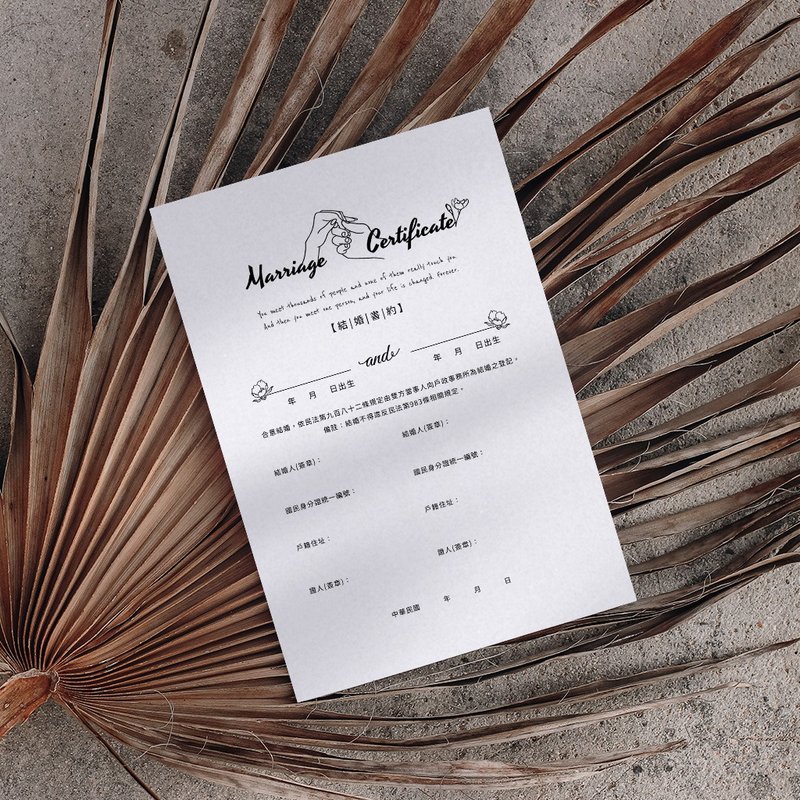 Marriage Certificate
You meet thousands of people and none of them really touch you.
And then you meet one person, and your life is changed. Forever.
【結|婚|書|約】
and
年 月 日出生 年 月 日出生
合意結婚，依民法第九百八十二條規定由雙方當事人向戶政事務所為結婚之登記。
備註：結婚不得違反民法第983條相關規定。
結婚人(簽章)： 結婚人(簽章)：
國民身分證統一編號： 國民身分證統一編號：
戶籍住址： 戶籍住址：
證人(簽章)： 證人(簽章)：
中華民國 年 月 日